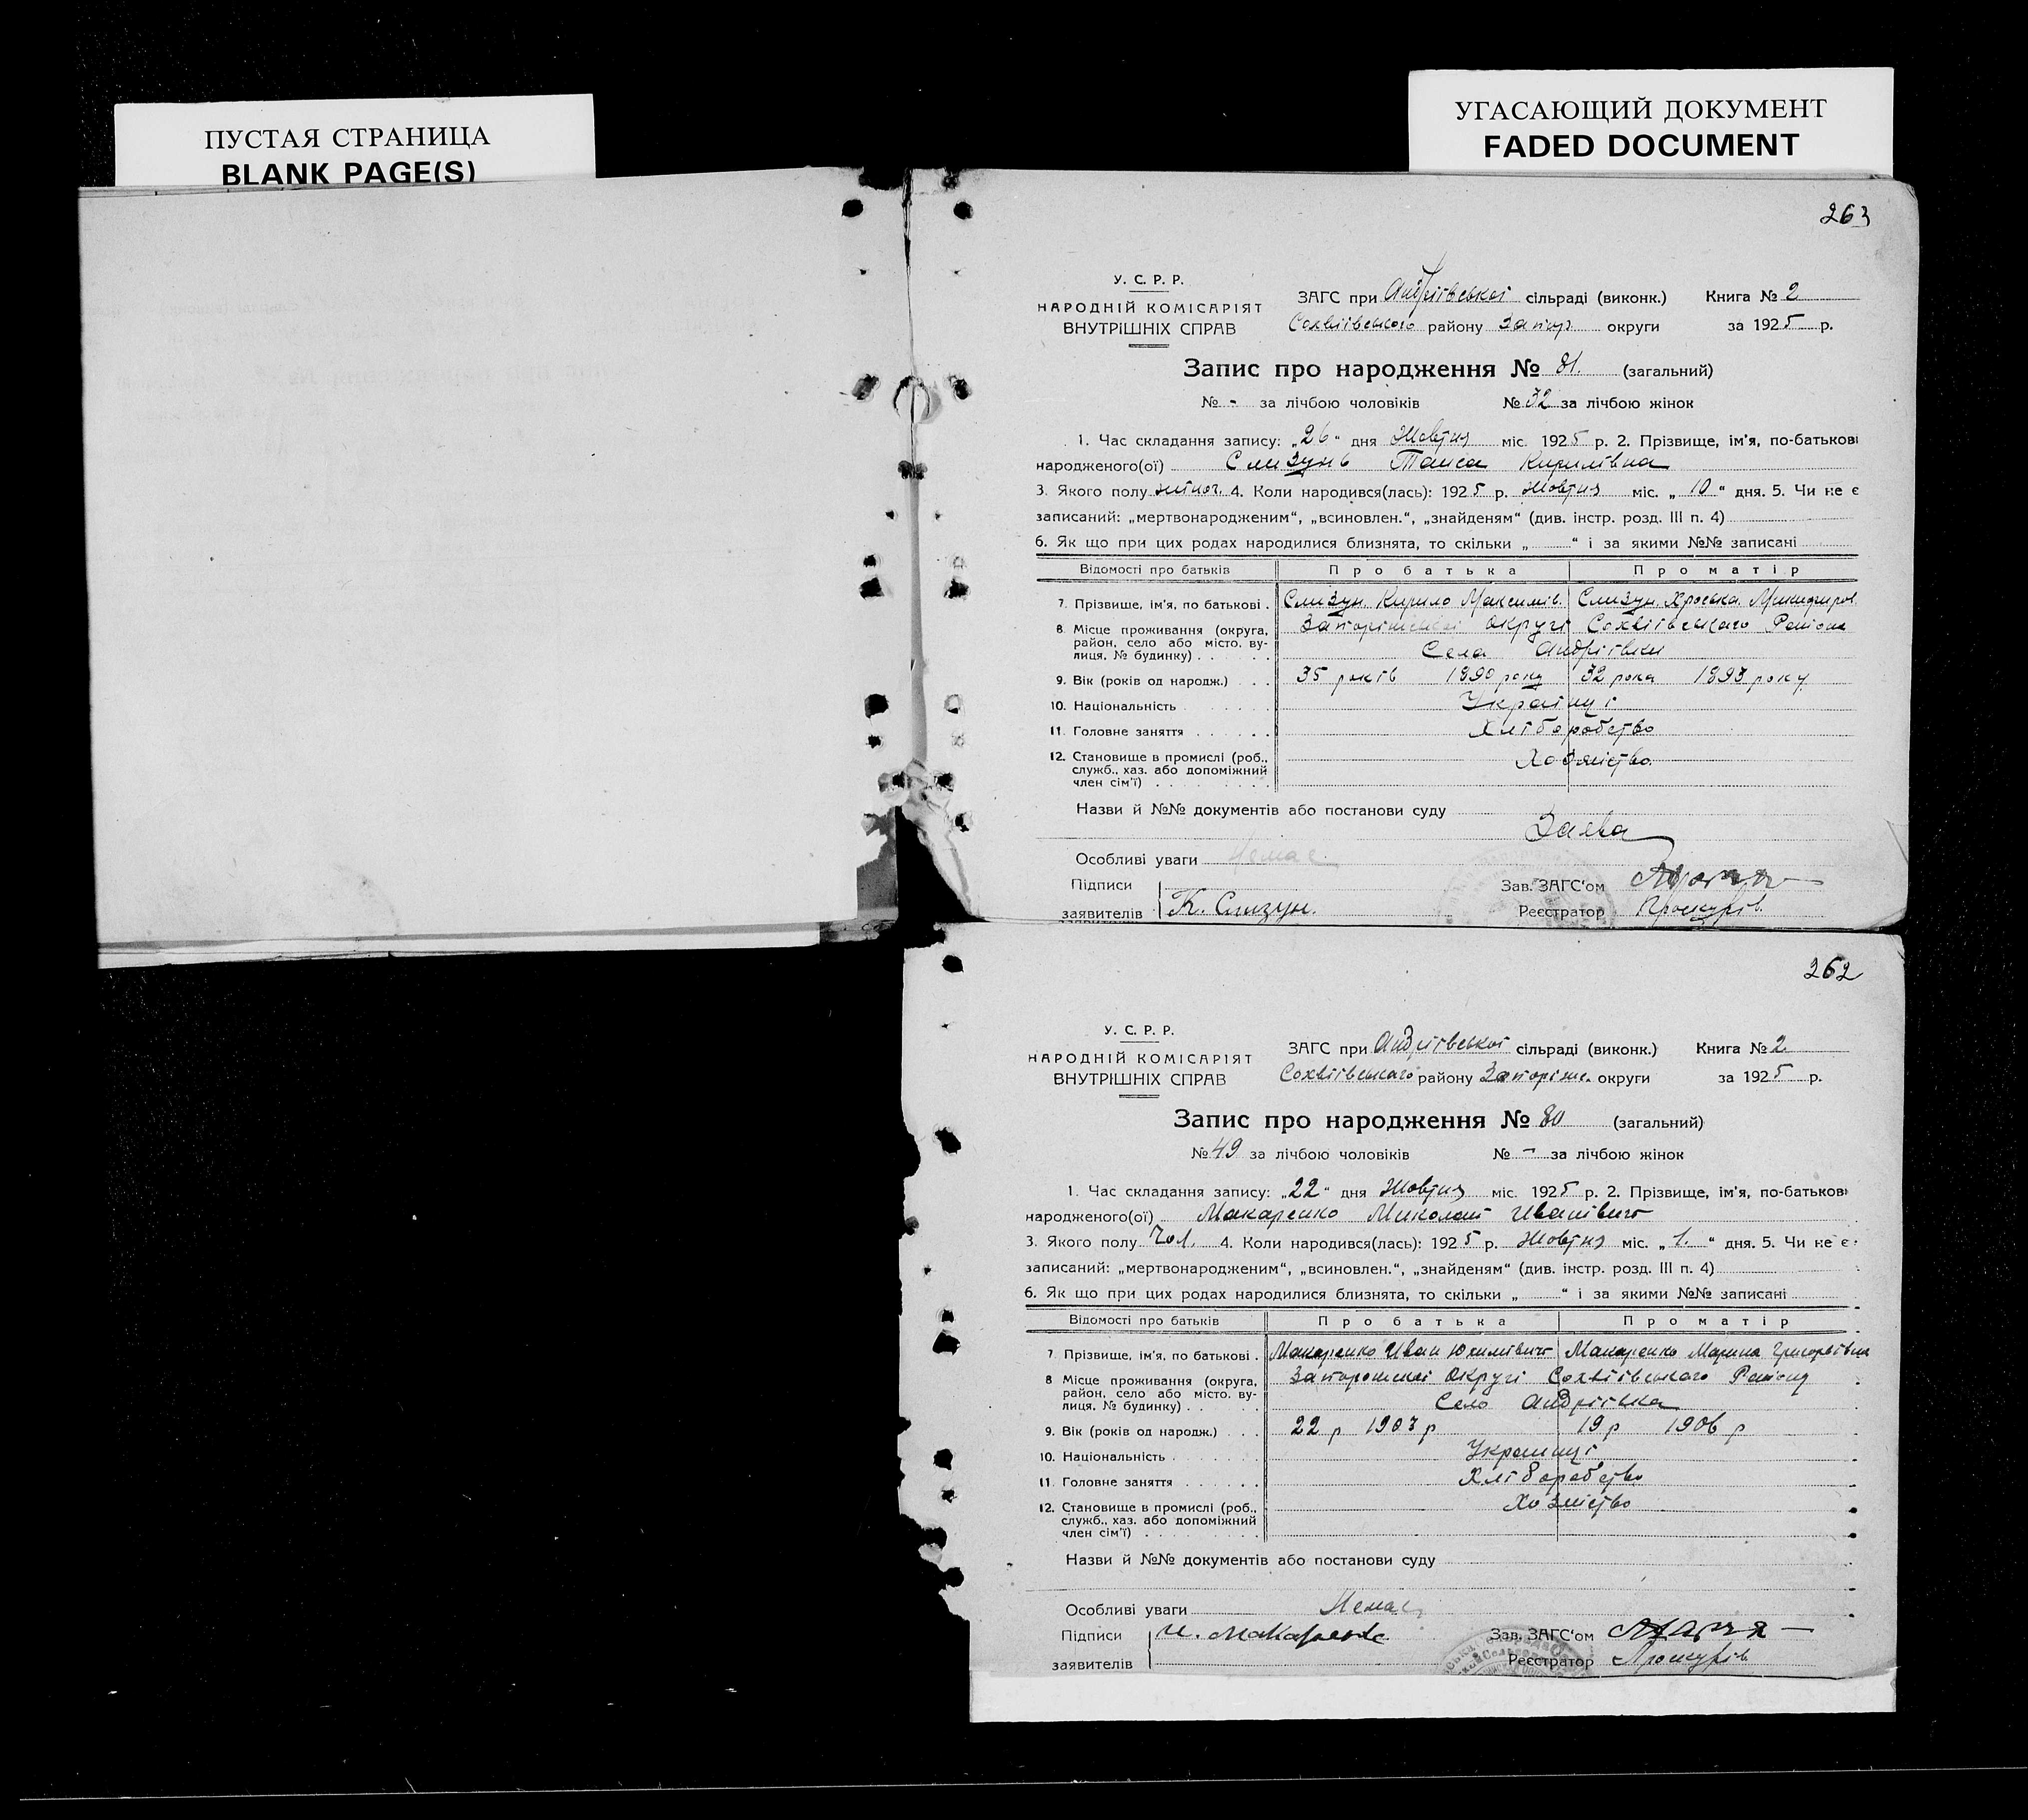 ПУСТАЯ СТРАНИЦА
BLANK PAGE(S)
УГАСАЮЩИЙ ДОКУМЕНТ
FADED DOCUMENT
263
У. С. Р. Р.
НАРОДНІЙ КОМІСАРІЯТ
ВНУТРІШНІХ СПРАВ
ЗАГС при Андріївської сільраді (виконк.) Книга № 2
Сохвіївського району Запор. округи за 1925 р.
Запис про народження № 81. (загальний)
№ - за лічбою чоловіків № 32 за лічбою жінок
1. Час складання запису: „26“ дня Жовтня міс. 1925 р. 2. Прізвище, ім'я, по-батькові
народженого(ої) Слизунь Таиса Кирилівна
3. Якого полу жіноч. 4. Коли народився(лась): 1925 р. Жовтня міс. „10“ дня. 5. Чи не є
записаний: „мертвонародженим“, „всиновлен.“, „знайденям“ (див. інстр. розд. III п. 4)
6. Як що при цих родах народилися близнята, то скільки „ “ і за якими №№ записані
Відомості про батьків Про батька Про матір
7. Прізвище, ім'я, по батькові . Слизун Кирило Максимів. Слизун Хроська
8. Місце проживання (округа, район, село або місто, вулиця, № будинку) Запоріжської Округі Сохвіївського Району
Села Андріївки
9. Вік (років од народж.) 35 років 1890 року 32 рока 1893 року
10. Національність Українці
11. Головне заняття Хліборобство
12. Становище в промислі (роб.,
служб., хаз. або допоміжний
член сім'ї) Хозяйство
Назви й №№ документів або постанови суду
Заява
Особливі уваги Немає
Підписи Зав. ЗАГС'ом
заявителів К. Слизун. Реєстратор
262
У. С. Р. Р.
НАРОДНІЙ КОМІСАРІЯТ
ВНУТРІШНІХ СПРАВ
ЗАГС при Андріївської сільраді (виконк.) Книга № 2
Сохвіївського району Запоріж. округи за 1925 р.
Запис про народження № 80 (загальний)
№ 49 за лічбою чоловіків № - за лічбою жінок
1. Час складання запису: „22“ дня Жовтня міс. 1925 р. 2. Прізвище, ім'я, по-батькові
народженого(ої) Макаренко Миколай Иванівич
3. Якого полу Чол. 4. Коли народився(лась): 1925 р. Жовтня міс. „1.“ дня. 5. Чи не є
записаний: „мертвонародженим“, „всиновлен.“, „знайденям“ (див. інстр. розд. III п. 4)
6. Як що при цих родах народилися близнята, то скільки „ “ і за якими №№ записані
Відомості про батьків Про батька Про матір
7. Прізвище, ім'я, по батькові . Макаренко Иван Юхимівич Макаренко Марина Григорівна
8 Місце проживання (округа, район, село або місто, вулиця, № будинку) Запорожскої Округі Сохвіївського Району
Село Андріївка
9. Вік (років од народж.) 22 р 1903 р 19 р 1906 р
10. Національність Українці
11. Головне заняття Хліборобство
12. Становище в промислі (роб.,
служб., хаз. або допоміжний
член сім'ї) Хозяйство
Назви й №№ документів або постанови суду
Особливі уваги Немає
Підписи И. Макаренко Зав. ЗАГС'ом
заявителів Реєстратор